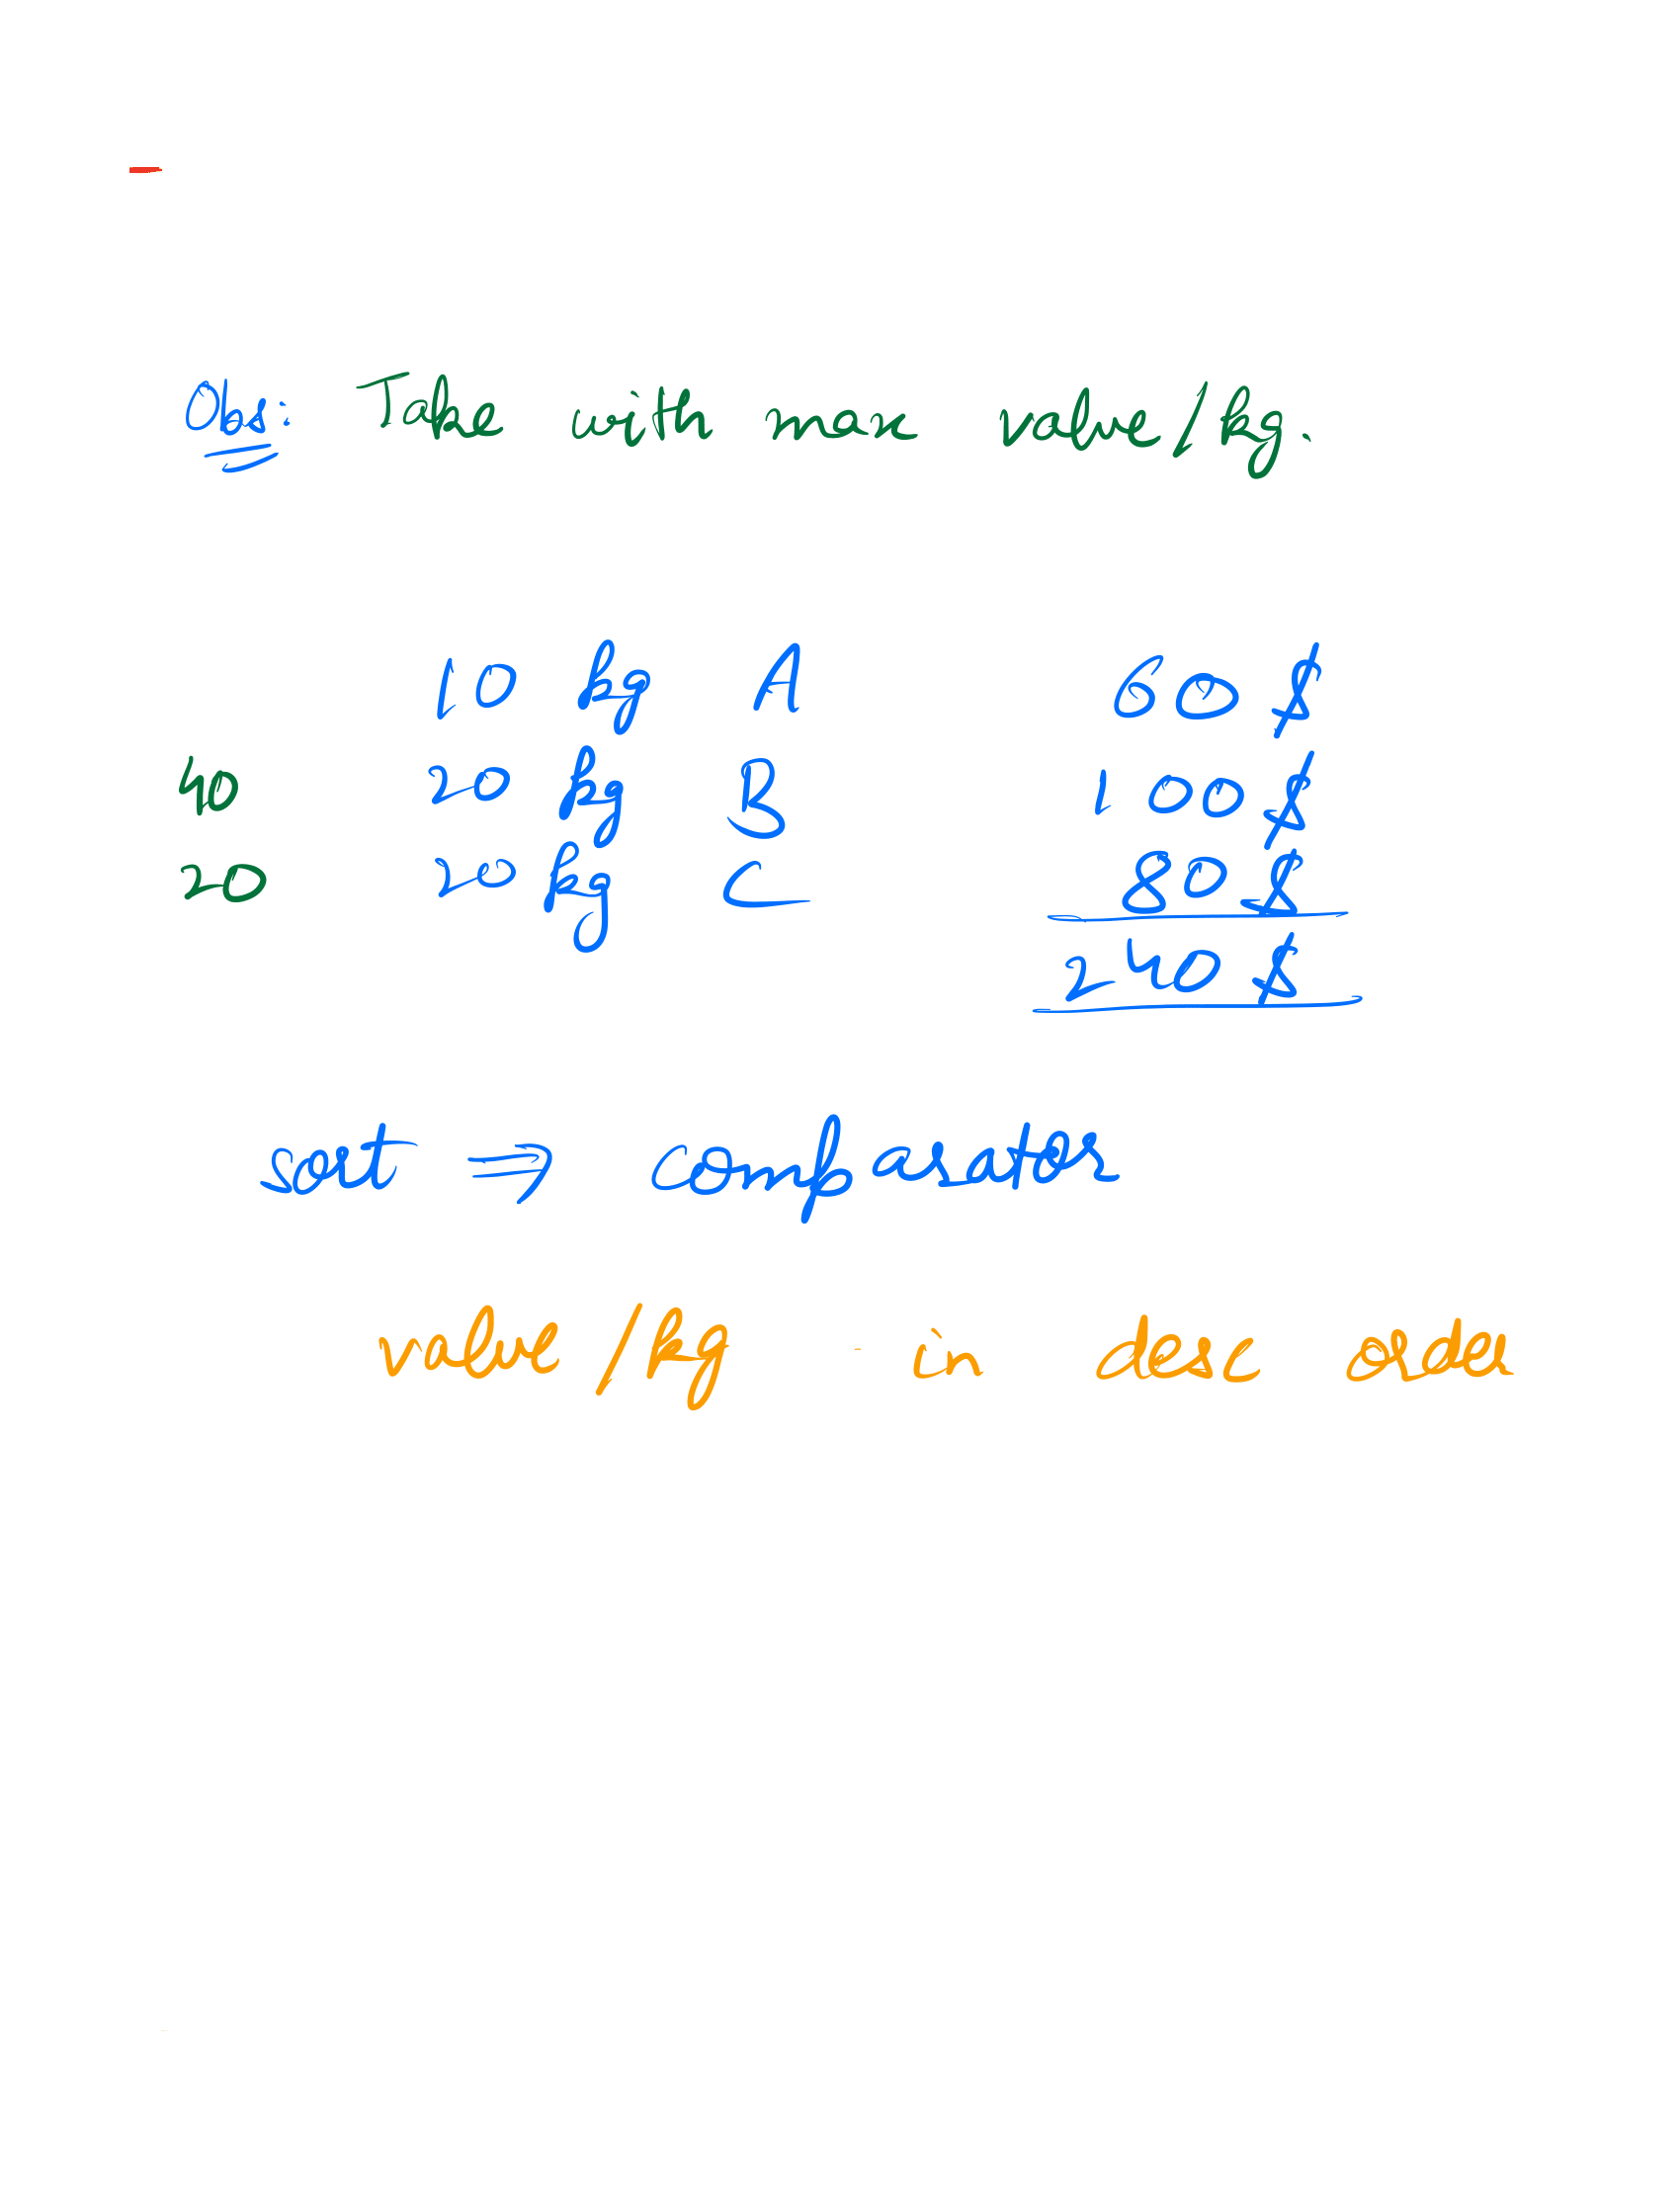 Obs: Take with max value/kg.
10 kg A 60 $
40 20 kg B 100 $
20 20 kg C 80 $
240 $
sort ⇒ comparator
value/kg - in desc order